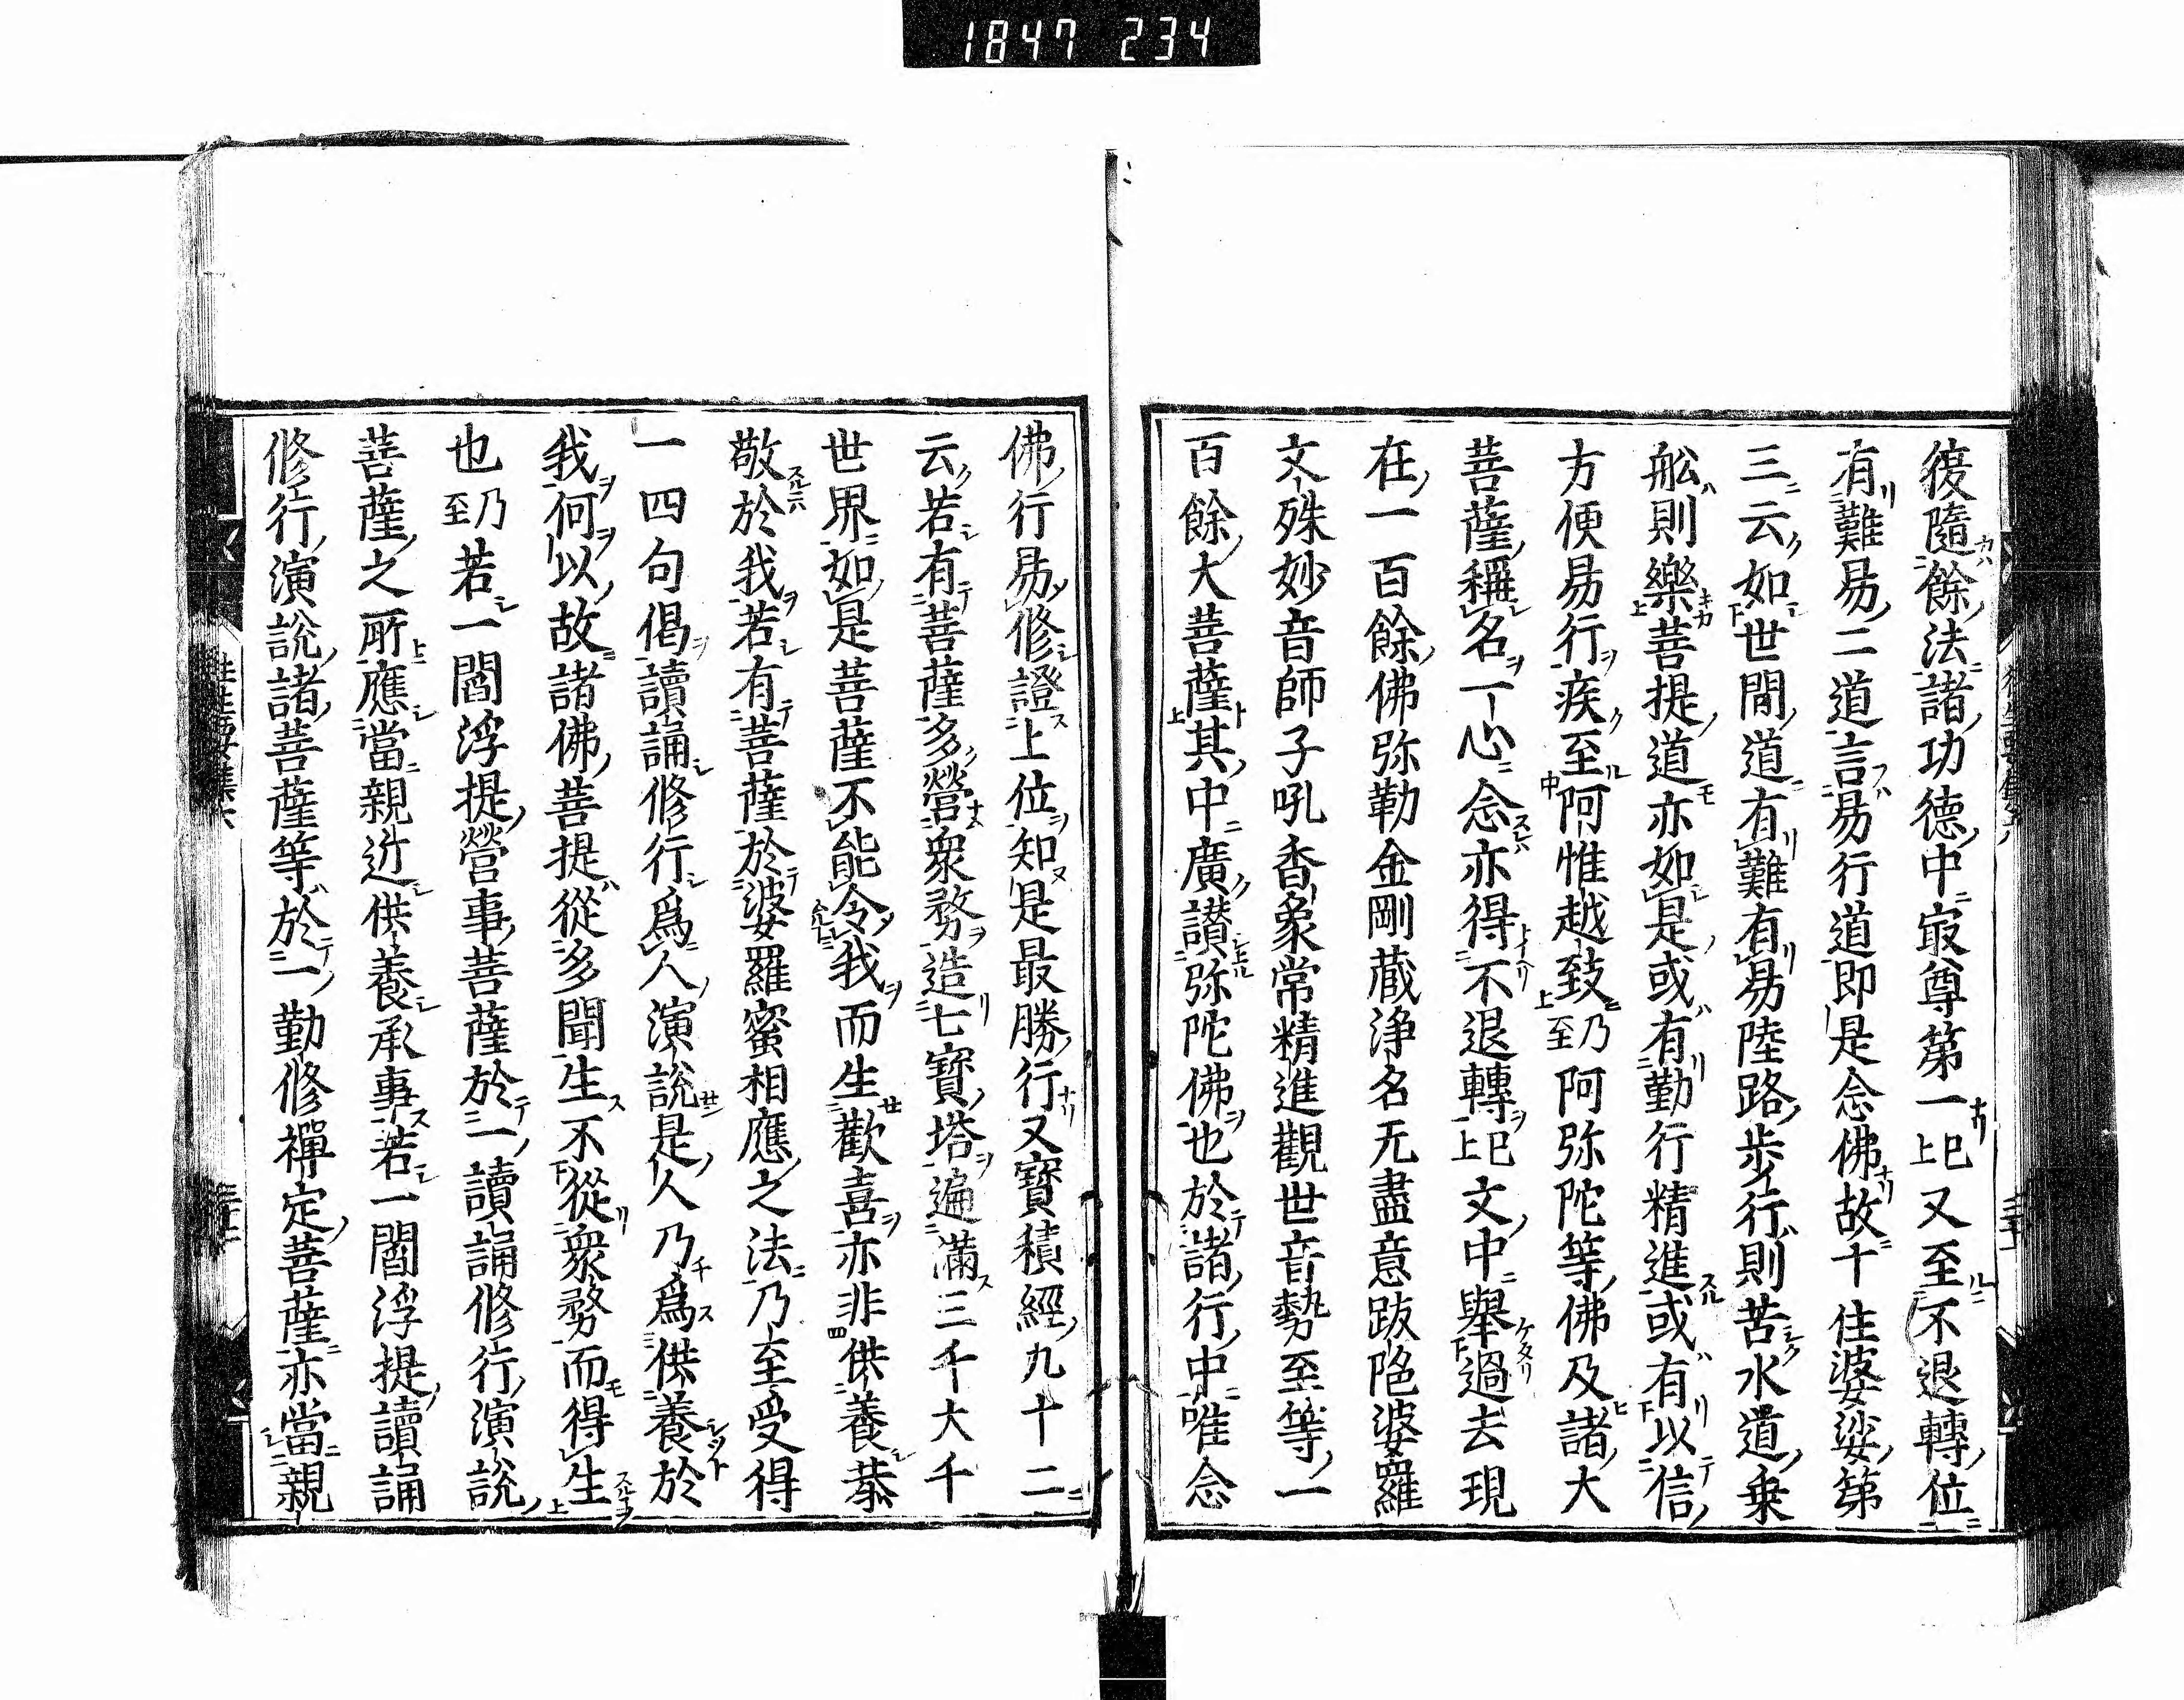 1847 234
復隨餘法諸功德中㝡尊第一已上又至不退轉位
有難易二道言易行道即是念佛故十住婆娑第
三云如世間道有難有易陸路步行則苦水道乗
舩則樂菩提道亦如是或有勤行精進或有以信
方便易行疾至阿惟越致乃至阿弥陀等佛及諸大
菩薩稱名一心念亦得不退轉已上文中舉過去現
在一百餘佛弥勒金剛蔵浄名无盡意跋陁婆羅
文殊妙音師子吼香象常精進觀世音勢至等一
百餘大菩薩其中廣讃弥陀佛也於諸行中唯念
佛行易修證上位知是最勝行又寶積經九十二
云若有菩薩多營衆務造七寶塔遍滿三千大千
世界如是菩薩不能令我而生歡喜亦非供養恭
敬於我若有菩薩於婆羅蜜相應之法乃至受得
一四句偈讀誦修行爲人演說是人乃爲供養於
我何以故諸佛菩提從多聞生不從衆務而得生
也乃至若一閻浮提營事菩薩於一讀誦修行演說
菩薩之所應當親近供養承事若一閻浮提讀誦
修行演說諸菩薩等於一勤修禪定菩薩亦當親